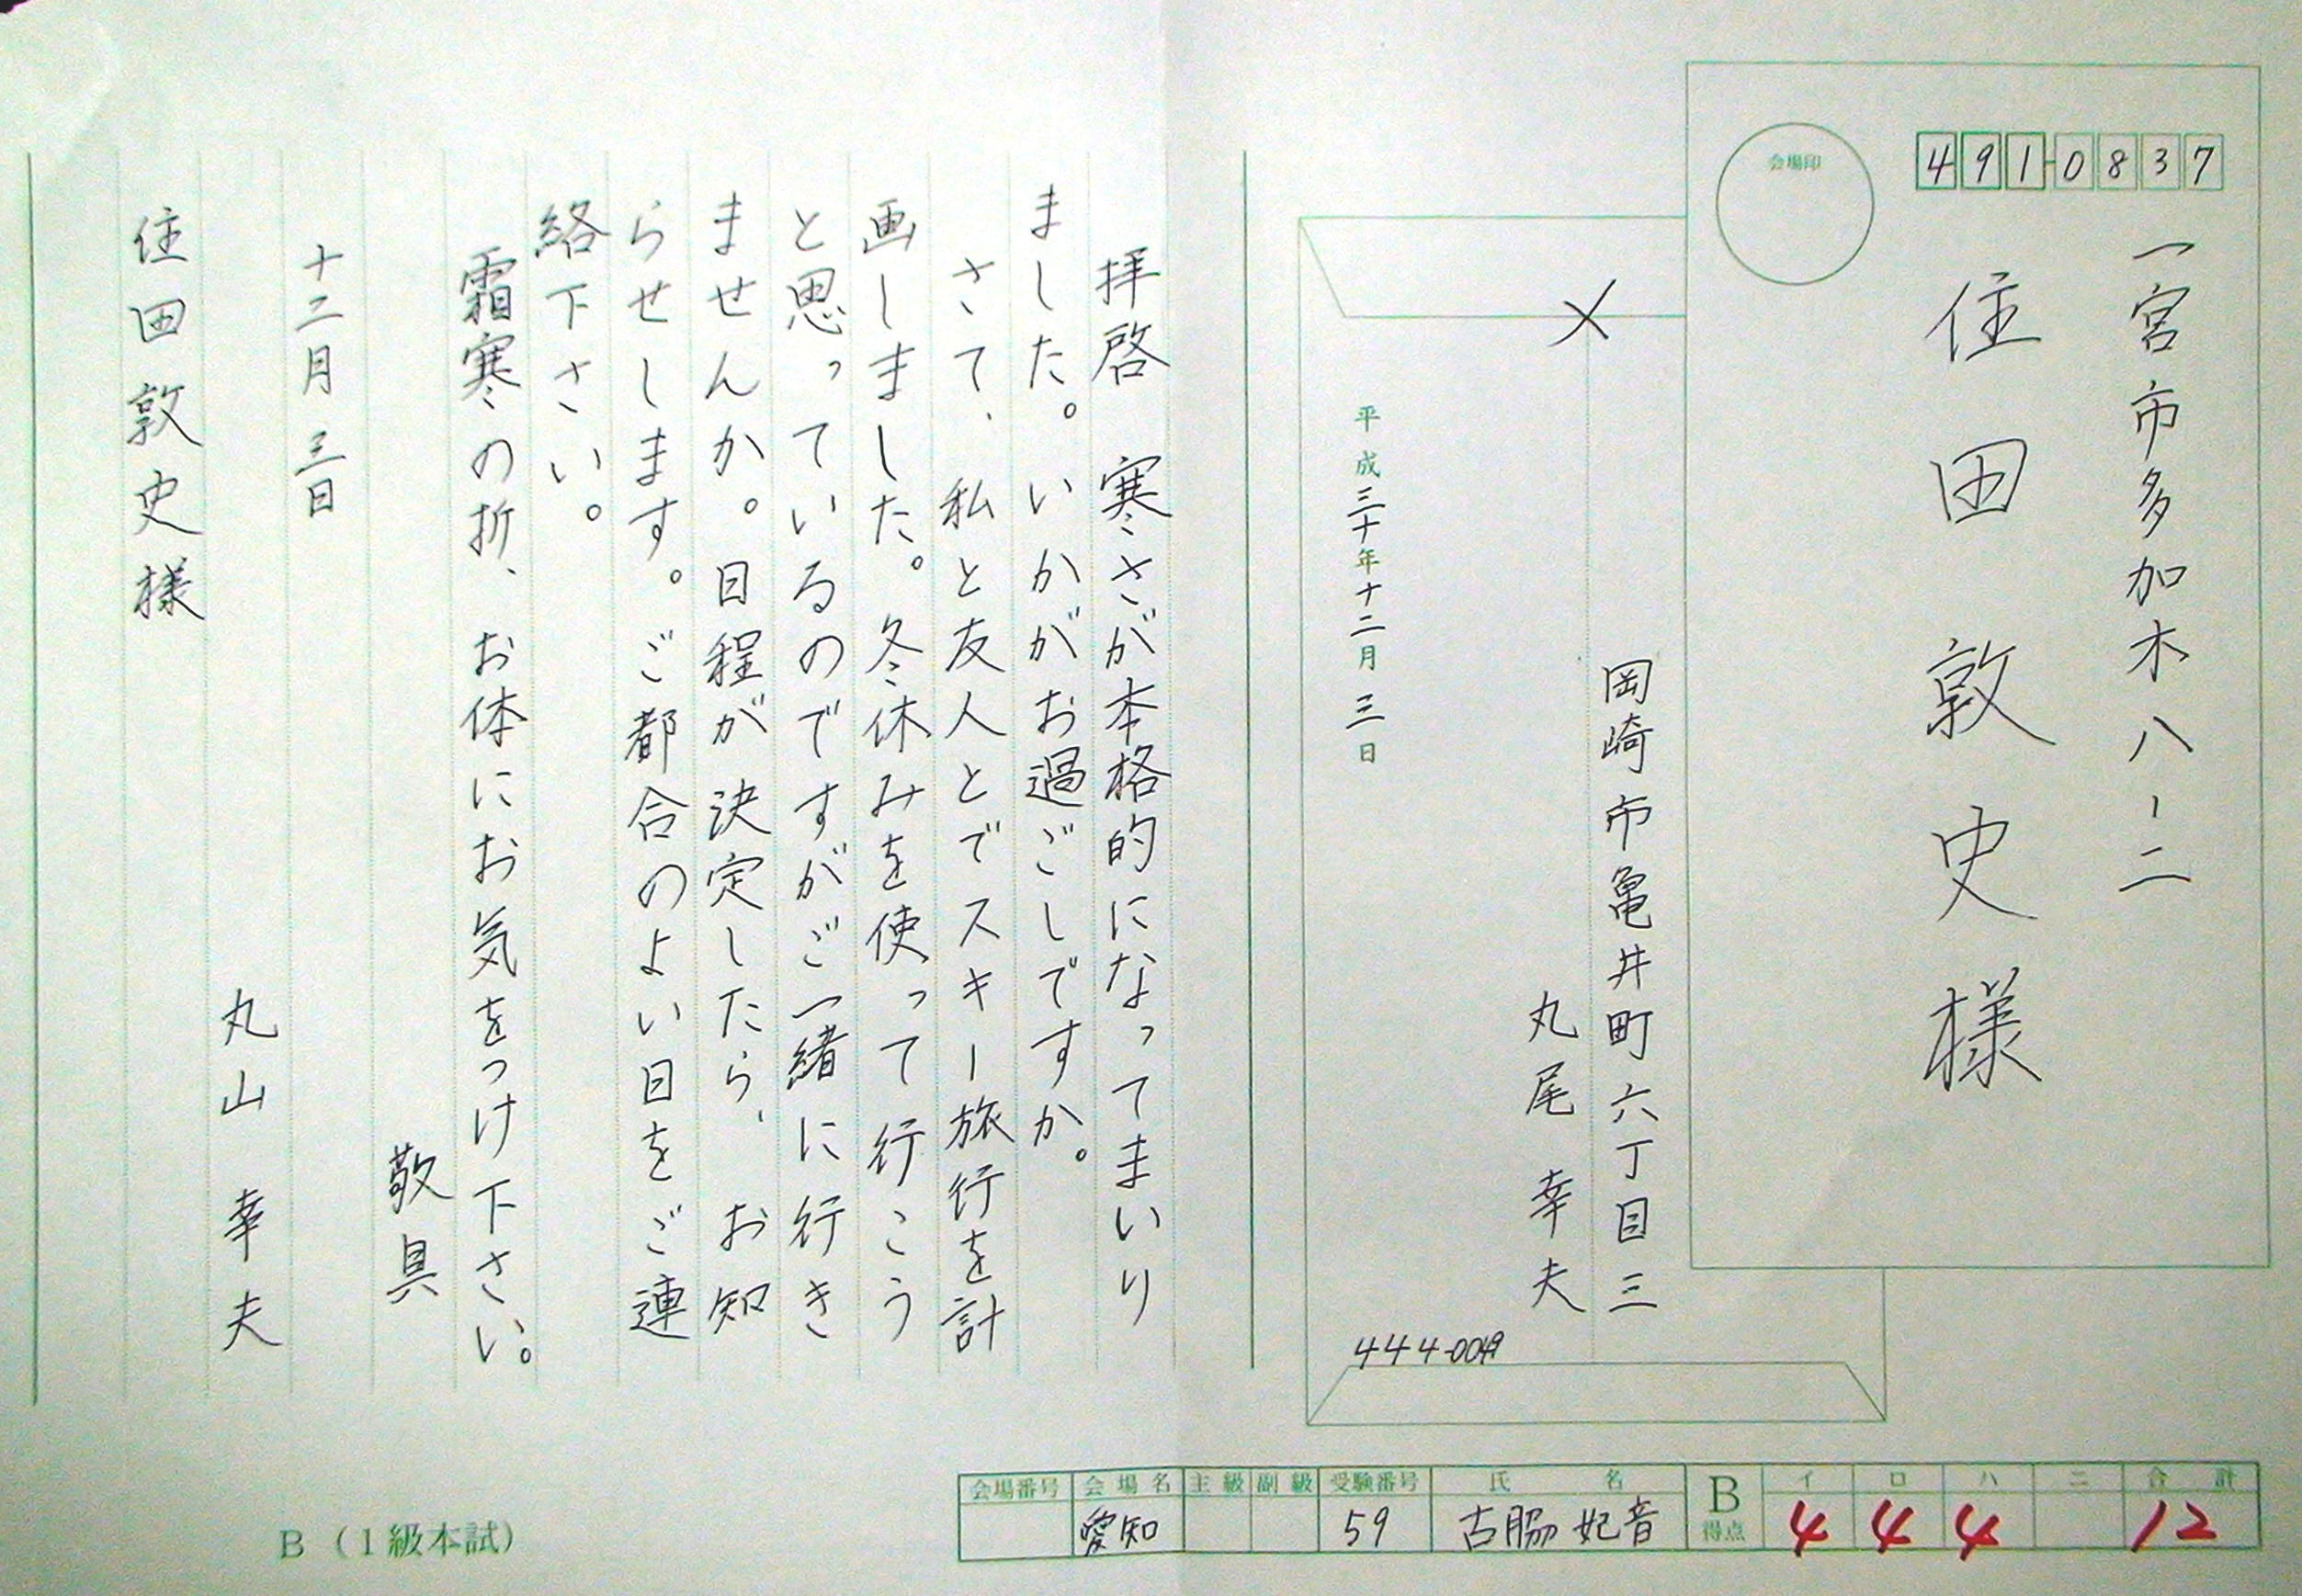 491-0837
会場印
一宮市多加木八ー二
住田敦史様
〆
岡崎市亀井町六丁目三
丸尾幸夫
444-0049
平成三十年十二月三日
拝啓 寒さが本格的になってまいり
ました。いかがお過ごしですか。
さて、私と友人とでスキー旅行を計
画しました。冬休みを使って行こう
と思っているのですがご一緒に行き
ませんか。日程が決定したら、お知
らせします。ご都合のよい日をご連
絡下さい。
霜寒の折、お体にお気をつけ下さい。
敬具
十二月三日
丸山幸夫
住田敦史様
B（1級本試）
会場番号 会場名 主級 副級 受験番号 氏名 B得点 イ ロ ハ ニ 合計
愛知 59 古脇妃音 4 4 4 12